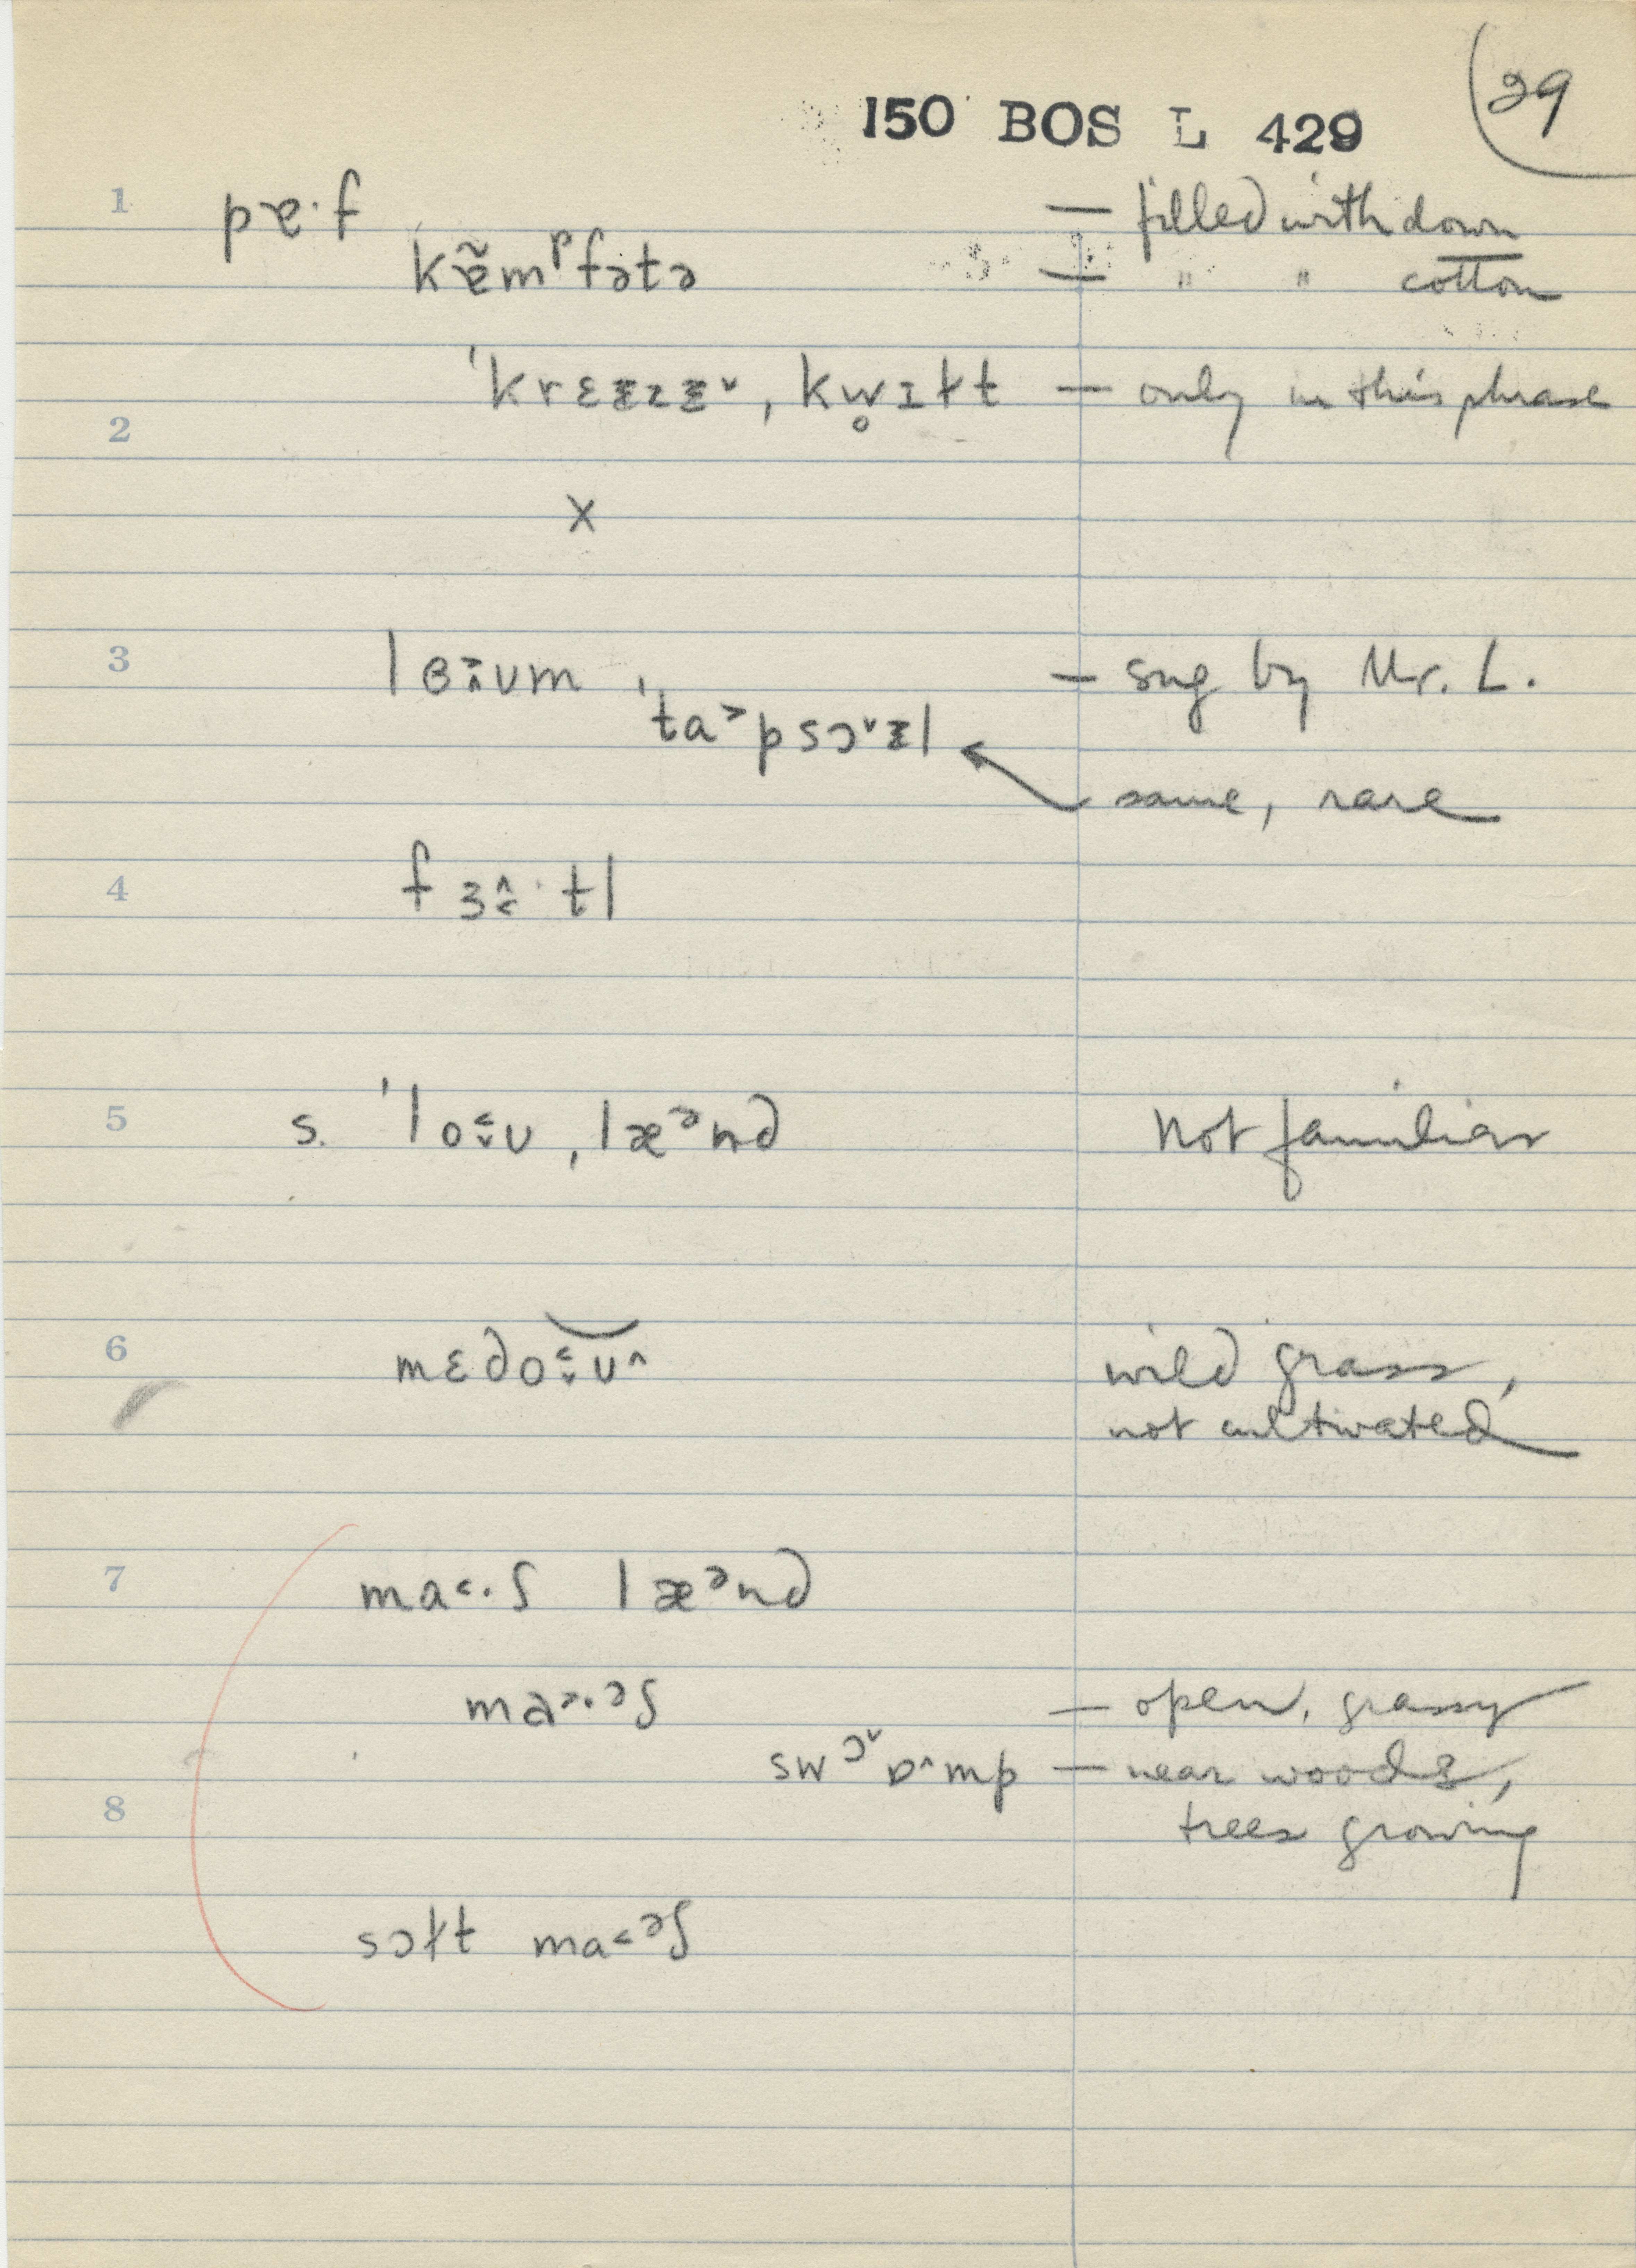 29
150 BOS L 429
1 pɐ·f — filled with down
kɐ̃mᵖfətə — " " cotton
ˈkrɛᵻzᵻ˅ ˌkw̥ɪłt — only in this phrase
2
x
3 lɵ˃˄ʊm — sug by Mr. L.
ˈta˃psɔ˅ᵻl
same, rare
4 fɜ˄˂·tl
5 s. ˈlo˂˅ʊ ˌlæᵊnd not familiar
6 mɛdo˂˅ʊ˄ wild grass,
not cultivated
7 ma˂·ʃ læᵊnd
ma˃·ᵊʃ — open, grassy
swɔ˅ɒ˄mp — near woods,
8 trees growing
sɔłt ma˂ᵊʃ